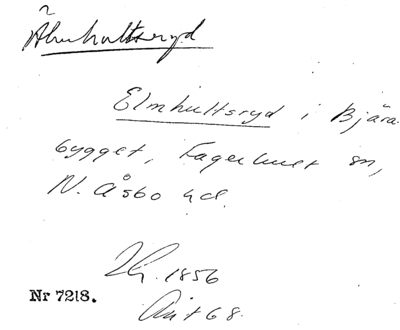 Älmhultsryd
Elmhultsryd i Bjära
bygget, Fagerhult sn,
N. Åsbo hd.
1856
Nr 7218.
68.